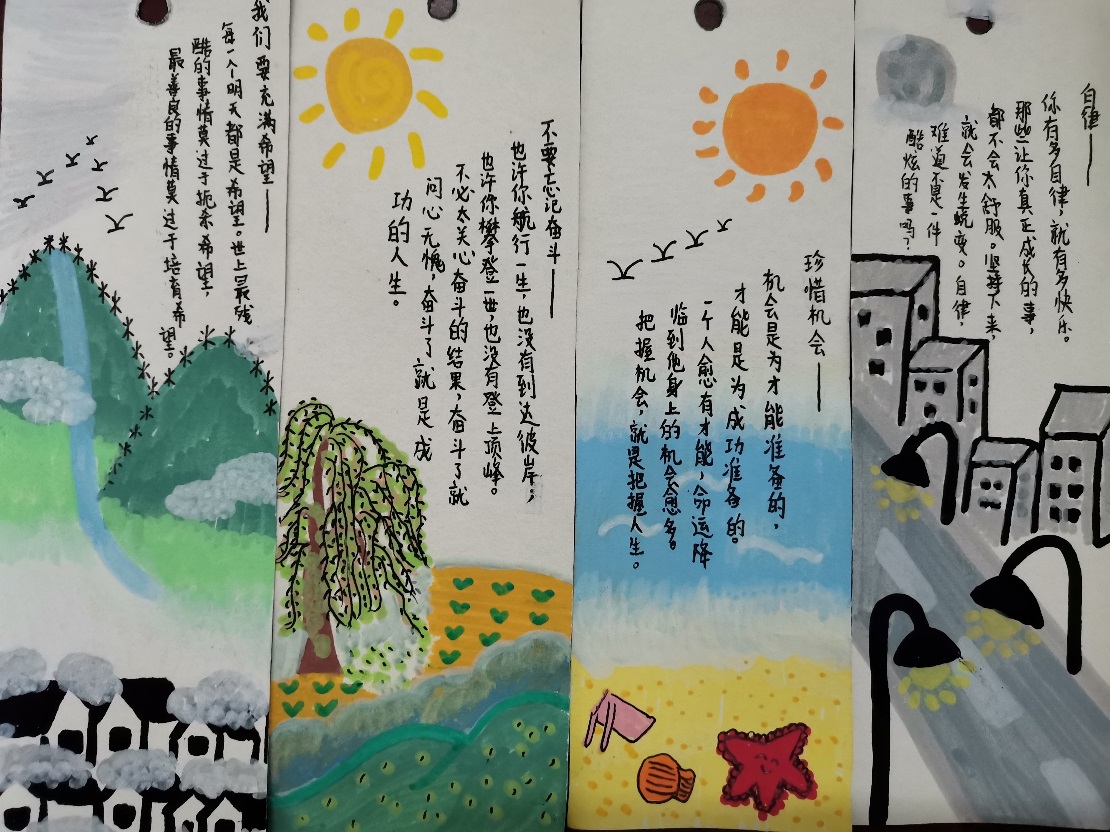 我们要充满希望——
每一个明天都是希望。世上最残
酷的事情莫过于扼杀希望，
最善良的事情莫过于培育希望。
不要忘记奋斗——
也许你航行一生，也没有到达彼岸；
也许你攀登一世，也没有登上顶峰。
不必太关心奋斗的结果，奋斗了就
问心无愧，奋斗了就是成
功的人生。
珍惜机会——
机会是为才能准备的，
才能是为成功准备的。
一个人愈有才能，命运降
临到他身上的机会愈多。
把握机会，就是把握人生。
自律——
你有多自律，就有多快乐。
那些让你真正成长的事，
都不会太舒服。坚持下来，
就会发生蜕变。自律，
难道不是一件
酷炫的事吗？